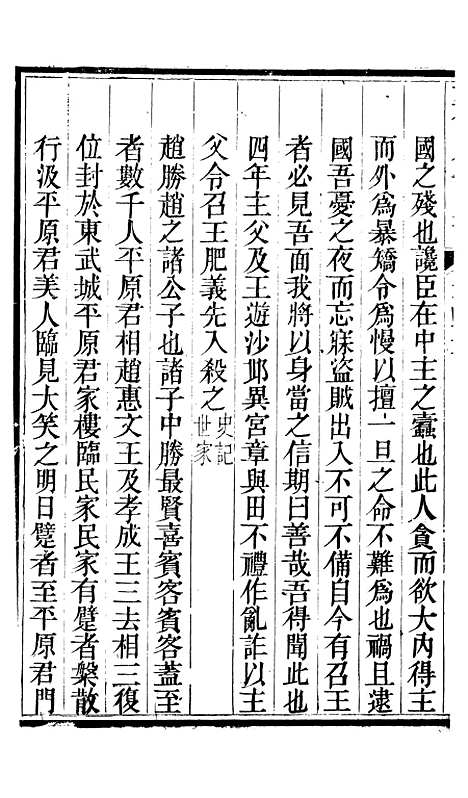 國之殘也讒臣在中主之蠹也此人貪而欲大內得主
而外爲暴矯令爲慢以擅一旦之命不難爲也禍且逮
國吾憂之夜而忘寐盜賊出入不可不備自今有召王
者必見吾面我將以身當之信期曰善哉吾得聞此也
四年主父及王遊沙邱異宮章與田不禮作亂詐以主
父令召王肥義先入殺之史記
世家
趙勝趙之諸公子也諸子中勝最賢喜賓客賓客蓋至
者數千人平原君相趙惠文王及孝成王三去相三復
位封於東武城平原君家樓臨民家民家有躄者槃散
行汲平原君美人臨見大笑之明日躄者至平原君門